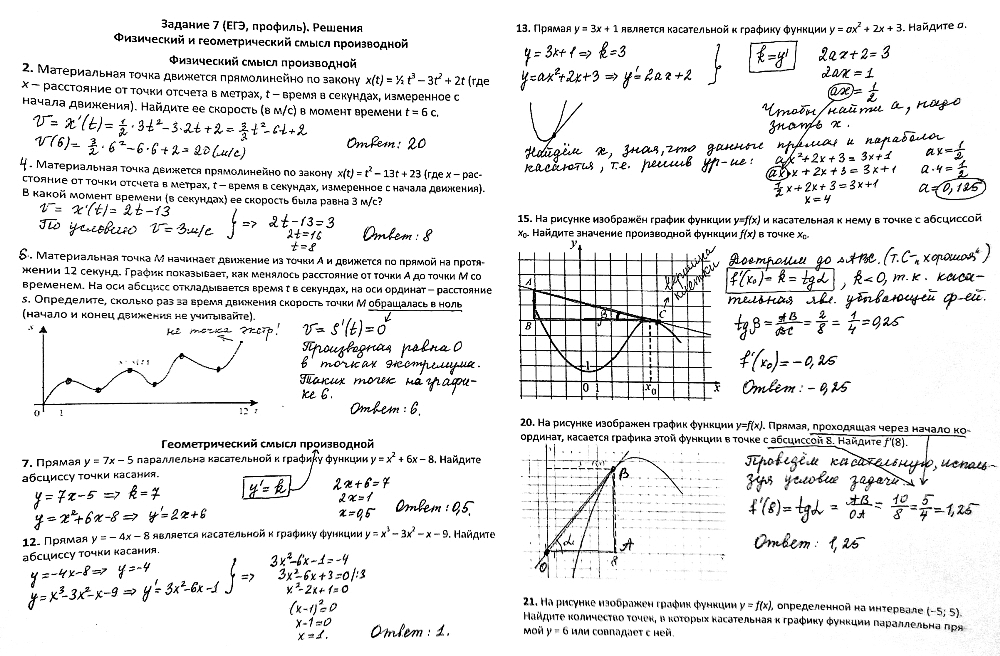 Задание 7 (ЕГЭ, профиль). Решения
Физический и геометрический смысл производной
Физический смысл производной
2. Материальная точка движется прямолинейно по закону x(t) = ½ t³ – 3t² + 2t (где
x – расстояние от точки отсчета в метрах, t – время в секундах, измеренное с
начала движения). Найдите ее скорость (в м/с) в момент времени t = 6 с.
V = x'(t) = 1/2 · 3t² - 3·2t + 2 = 3/2 t² - 6t + 2
V(6) = 3/2 · 6² - 6·6 + 2 = 20 (м/с)
Ответ: 20
4. Материальная точка движется прямолинейно по закону x(t) = t² – 13t + 23 (где x – рас-
стояние от точки отсчета в метрах, t – время в секундах, измеренное с начала движения).
В какой момент времени (в секундах) ее скорость была равна 3 м/с?
V = x'(t) = 2t - 13
По условию V = 3 м/с } => 2t - 13 = 3
2t = 16
t = 8
Ответ: 8
6. Материальная точка M начинает движение из точки A и движется по прямой на протя-
жении 12 секунд. График показывает, как менялось расстояние от точки A до точки M со
временем. На оси абсцисс откладывается время t в секундах, на оси ординат – расстояние
s. Определите, сколько раз за время движения скорость точки M обращалась в ноль
(начало и конец движения не учитывайте).
s
не точка экстр!
0 1 12 t
V = S'(t) = 0
Производная равна 0
в точках экстремума.
Таких точек на графи-
ке 6.
Ответ: 6.
Геометрический смысл производной
7. Прямая y = 7x – 5 параллельна касательной к графику функции y = x² + 6x – 8. Найдите
абсциссу точки касания.
y = 7x - 5 => k = 7
y = x² + 6x - 8 => y' = 2x + 6
y' = k
2x + 6 = 7
2x = 1
x = 0,5
Ответ: 0,5.
12. Прямая y = – 4x – 8 является касательной к графику функции y = x³ – 3x² – x – 9. Найдите
абсциссу точки касания.
y = -4x - 8 => y = -4
y = x³ - 3x² - x - 9 => y' = 3x² - 6x - 1 } =>
3x² - 6x - 1 = -4
3x² - 6x + 3 = 0 /:3
x² - 2x + 1 = 0
(x-1)² = 0
x - 1 = 0
x = 1.
Ответ: 1.
13. Прямая y = 3x + 1 является касательной к графику функции y = ax² + 2x + 3. Найдите a.
y = 3x + 1 => k = 3
y = ax² + 2x + 3 => y' = 2ax + 2 }
k = y'
2ax + 2 = 3
2ax = 1
ax = 1/2
Чтобы найти a, надо
знать x.
Найдём x, зная, что данные прямая и парабола
касаются, т.е. решив ур-ие: ax² + 2x + 3 = 3x + 1
(ax)x + 2x + 3 = 3x + 1
1/2 x + 2x + 3 = 3x + 1
x = 4
ax = 1/2
a·4 = 1/2
a = 0,125
15. На рисунке изображён график функции y=f(x) и касательная к нему в точке с абсциссой
x₀. Найдите значение производной функции f(x) в точке x₀.
y
A
B
β
C
1
0 1
x₀
x
вершина
клетки
Достроим до △ABC. (т. C - „хорошая“)
f'(x₀) = k = tgα , k<0, т.к. каса-
тельная явл. убывающей ф-ей.
tgβ = AB/BC = 2/8 = 1/4 = 0,25
f'(x₀) = - 0,25
Ответ: - 0,25
20. На рисунке изображен график функции y=f(x). Прямая, проходящая через начало ко-
ординат, касается графика этой функции в точке с абсциссой 8. Найдите f'(8).
B
α
A
O
8
Проведём касательную, исполь-
зуя условие задачи
f'(8) = tgα = AB/OA = 10/8 = 5/4 = 1,25
Ответ: 1,25
21. На рисунке изображен график функции y = f(x), определенной на интервале (–5; 5).
Найдите количество точек, в которых касательная к графику функции параллельна пря-
мой y = 6 или совпадает с ней.